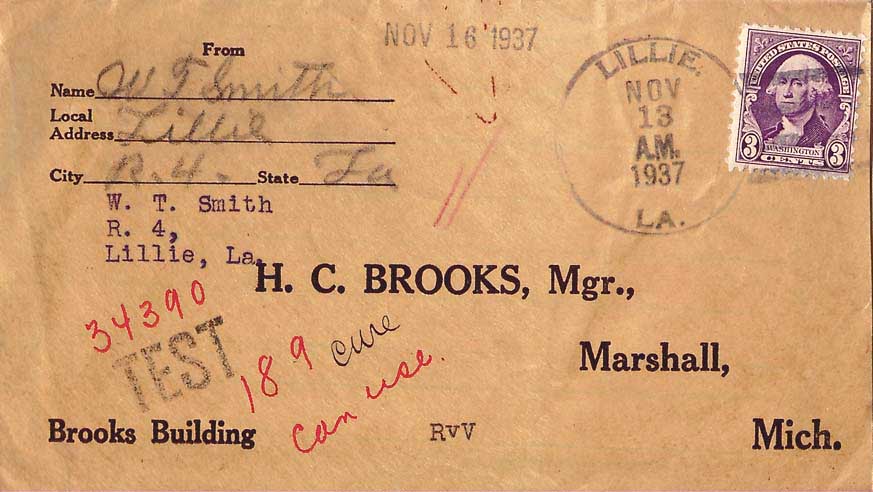 From
NOV 16 1937
Name W T Smith
Local
Address Lillie
City R. 4. State La
W. T. Smith
R. 4,
Lillie, La.
LILLIE,
NOV
13
A.M.
1937
LA.
UNITED STATES POSTAGE
3 WASHINGTON 3
CENTS
H. C. BROOKS, Mgr.,
34390
TEST
189 cure
can use.
Marshall,
Brooks Building RvV Mich.